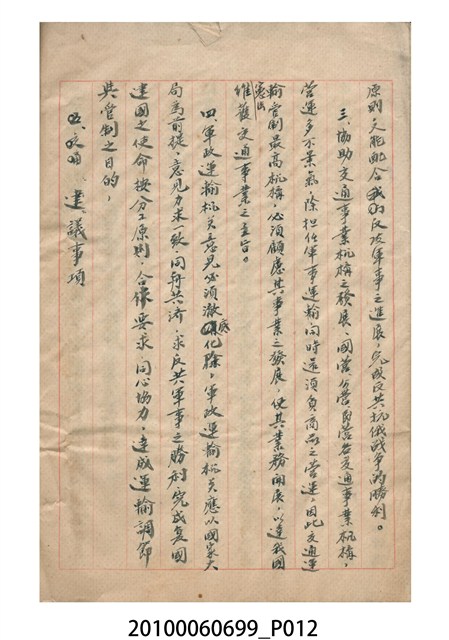 原則，又能配合我的反攻軍事之進展，完成反共抗俄戰爭的勝利。
三、協助交通事業机構之發展，國營公營民營各交通事業机構，
營運多不景氣，除担任軍事運輸間時還須負商品之營運，因此交通運
輸管制最高机構，必須顧應其事業之發展，使其業務開展，以達我國
憲法
維護交通事業之主旨。
四、軍政運輸机关意見必須澈底化除，軍政運輸机关應以國家大
局為前提，意見力求一致，同舟共济，求反共軍事之勝利，完成复國
建國之使命，按分工原則，合作要求，同心協力，達成運輸調節
與管制之目的，
五、建議事項
20100060699_P012